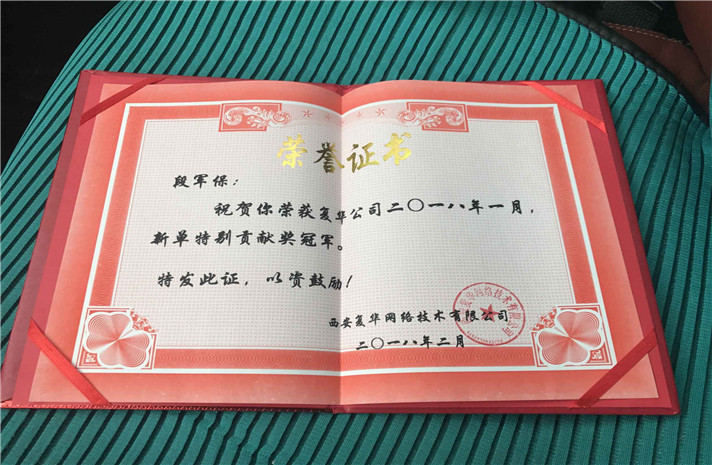 荣誉证书
段军保：
祝贺你荣获复华公司二〇一八年一月，
新单特别贡献奖冠军。
特发此证，以资鼓励！
西安复华网络技术有限公司
二〇一八年二月